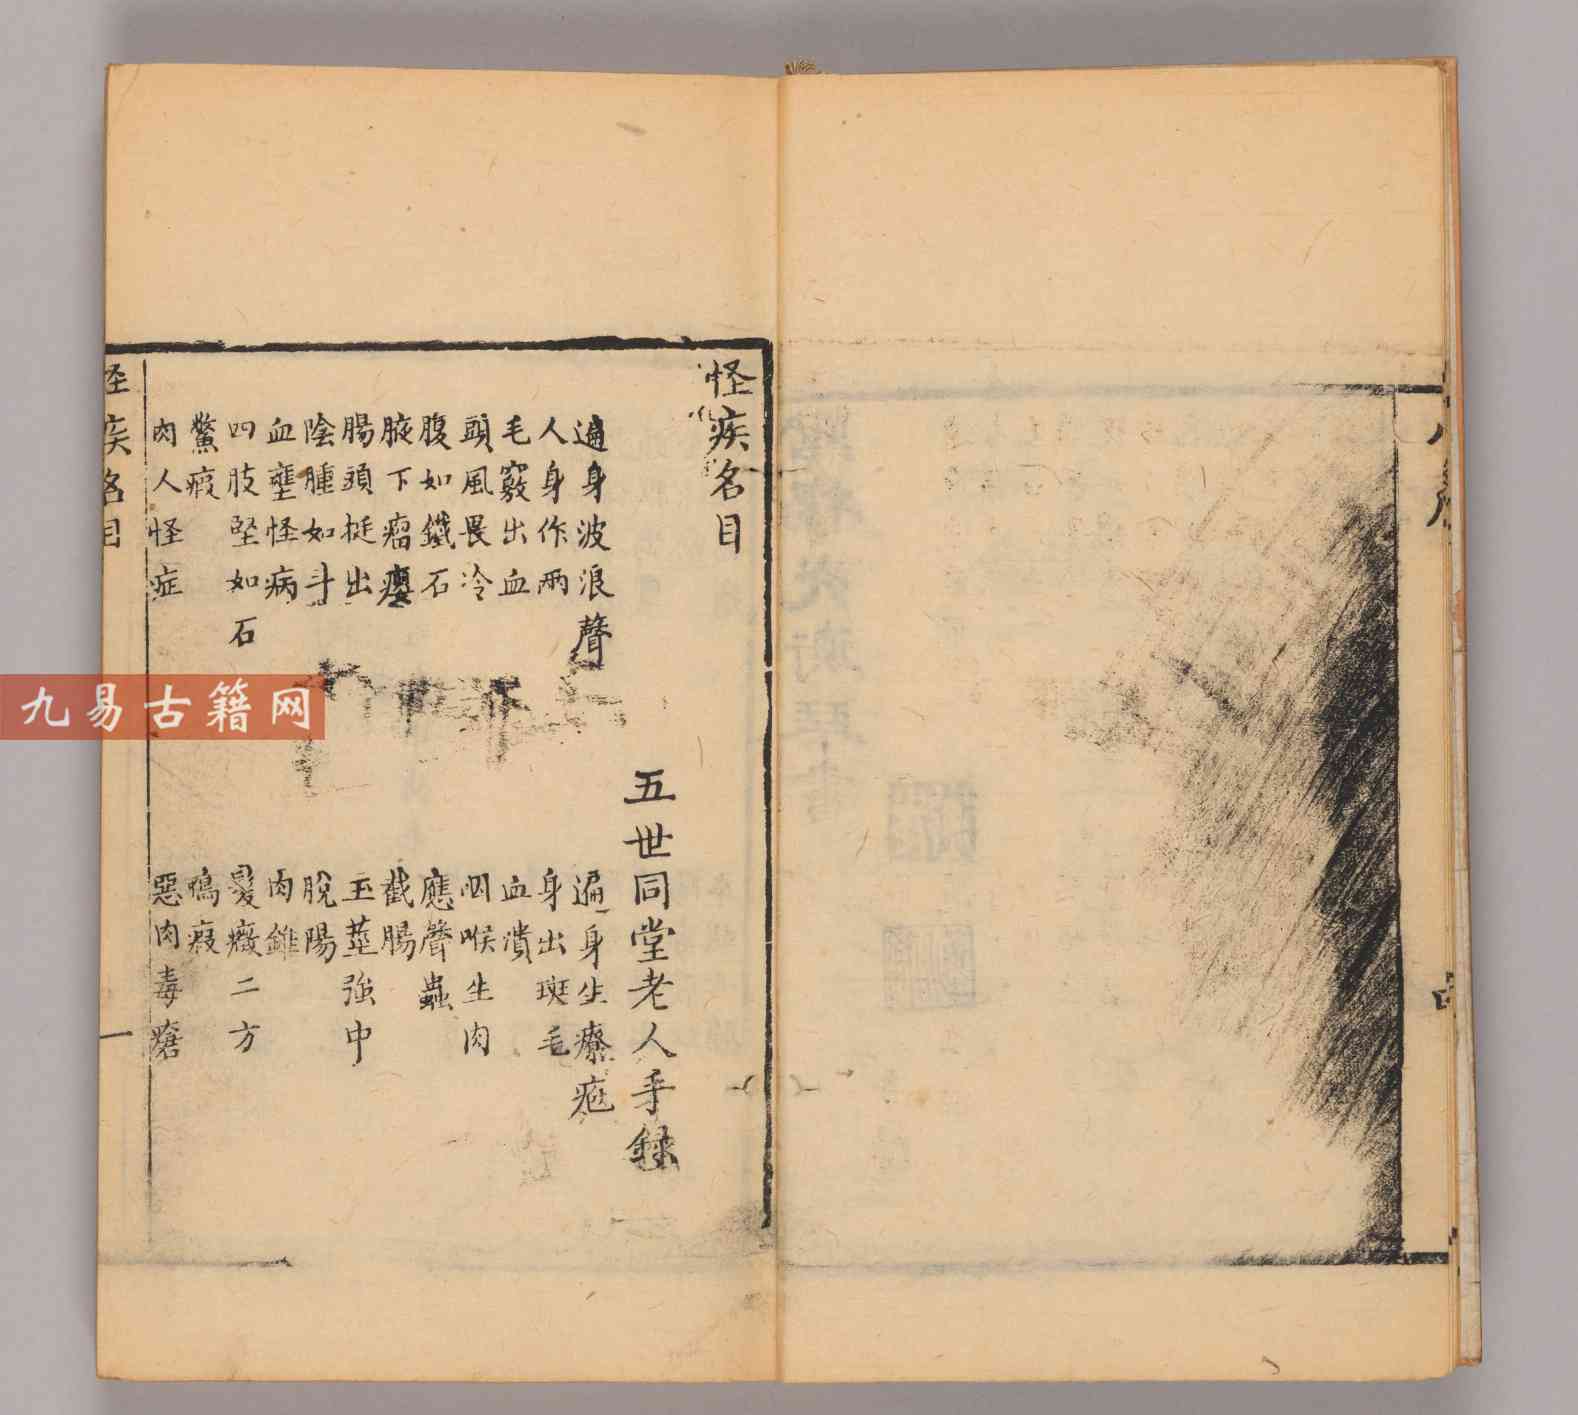 怪疾名目
五世同堂老人手錄
遍身波浪聲
遍身生瘵疪
人身作兩
身出斑毛
毛竅出血
血潰
頭風畏冷
咽喉生肉
腹如鐵石
應聲蟲
腋下瘤癭
截腸
腸頭挺出
玉莖強中
陰腫如斗
脫陽
血壅怪病
肉錐
四肢堅如石
髮癥二方
鱉瘕
鴨瘕
肉人怪症
惡肉毒瘡
怪疾名目
一
九易古籍网